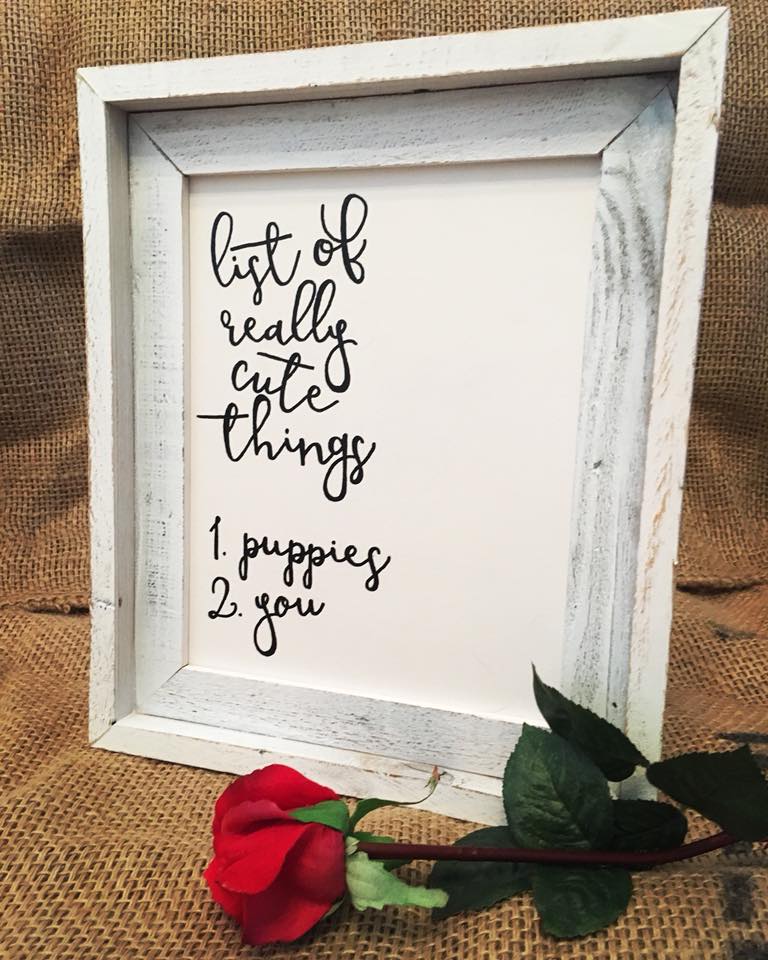 list of
really
cute
things
1. puppies
2. you